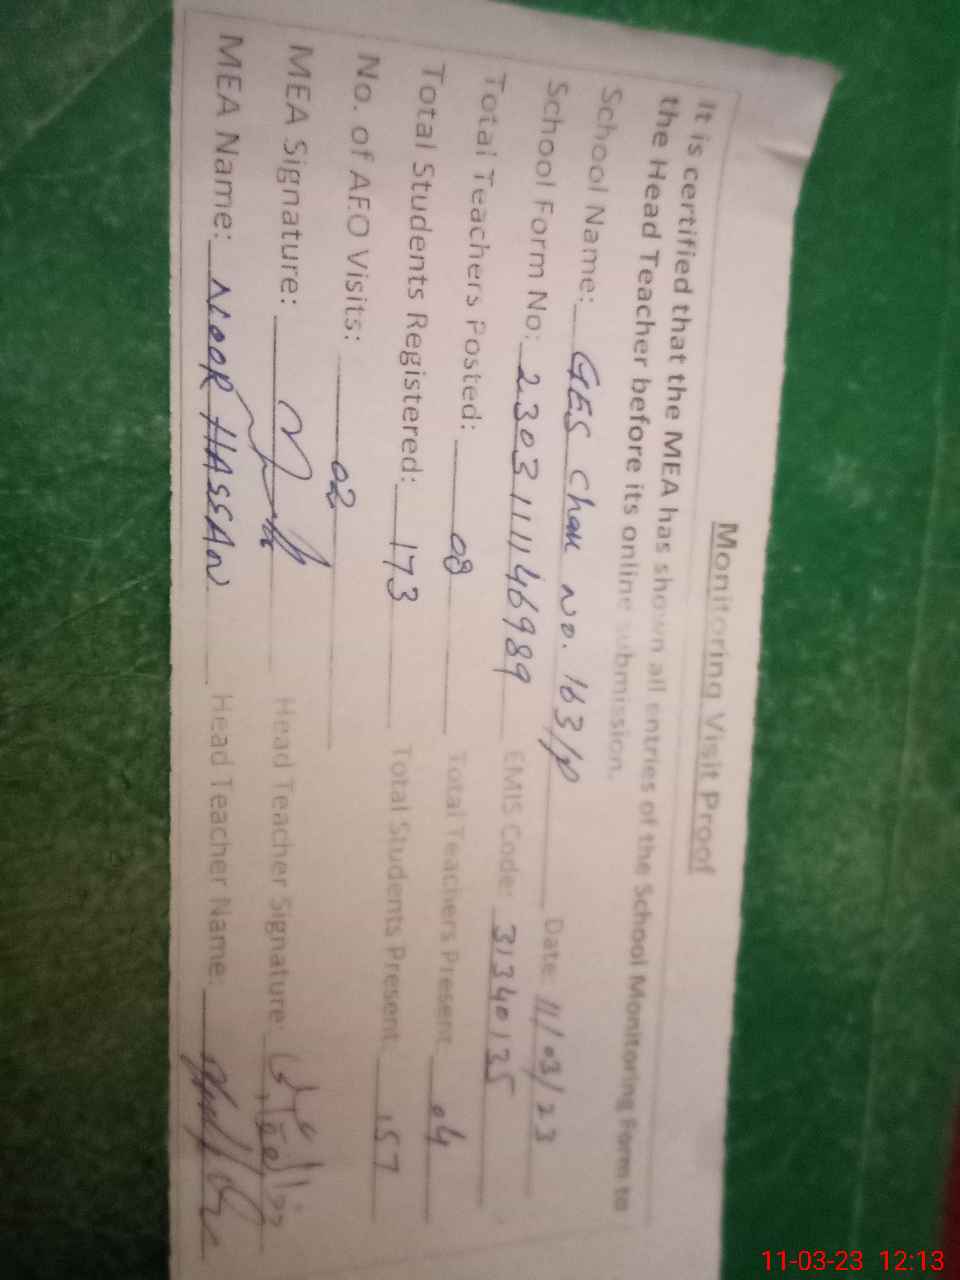 Monitoring Visit Proof
It is certified that the MEA has shown all entries of the School Monitoring Form to
the Head Teacher before its online submission.
School Name: GES Chak No. 163/P Date: 11/03/23
School Form No: 230311146989 EMIS Code: 31340125
Total Teachers Posted: 08 Total Teachers Present 04
Total Students Registered: 173 Total Students Present 157
No. of AEO Visits: 02
MEA Signature: Head Teacher Signature:
MEA Name: NOOR HASSAN Head Teacher Name:
11-03-23 12:13